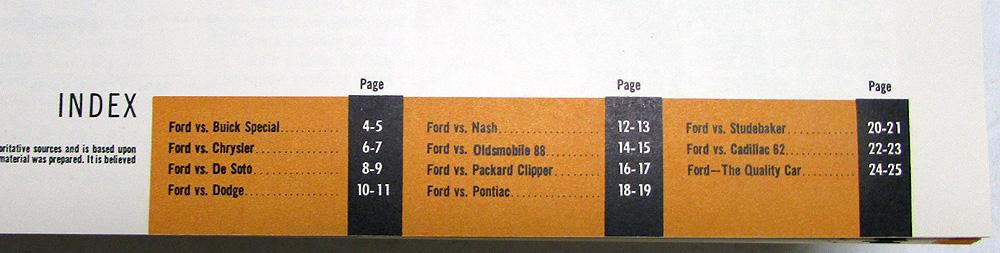 INDEX
oritative sources and is based upon
material was prepared. It is believed
Page
Ford vs. Buick Special 4-5
Ford vs. Chrysler 6-7
Ford vs. De Soto 8-9
Ford vs. Dodge 10-11
Page
Ford vs. Nash 12-13
Ford vs. Oldsmobile 88 14-15
Ford vs. Packard Clipper 16-17
Ford vs. Pontiac 18-19
Page
Ford vs. Studebaker 20-21
Ford vs. Cadillac 62 22-23
Ford—The Quality Car 24-25